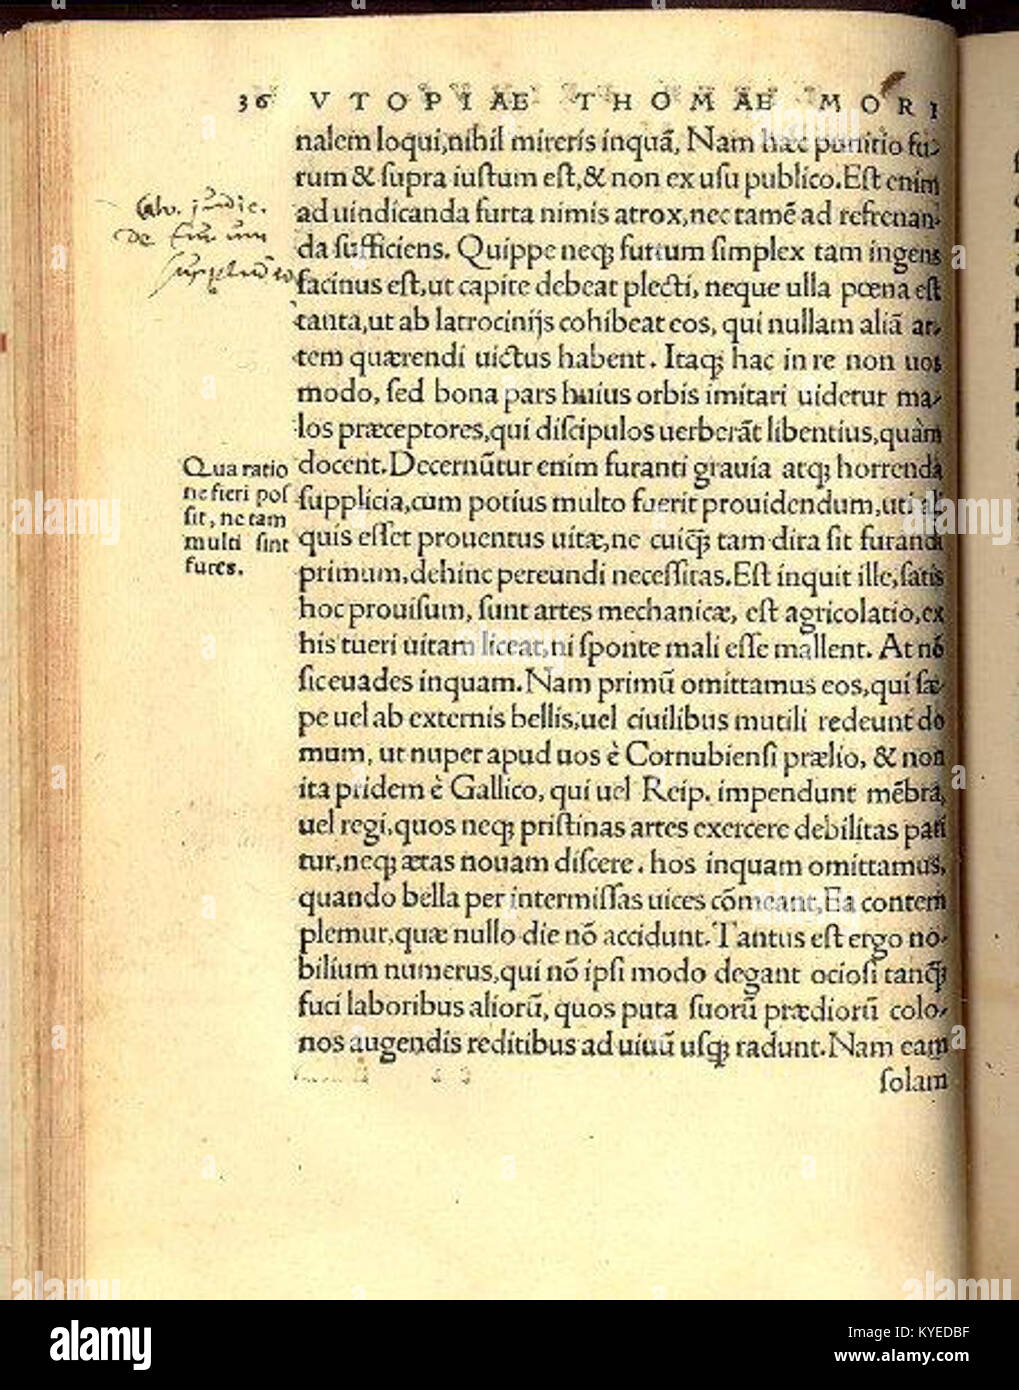 36 VTOPIAE THOMAE MORI
nalem loqui,nihil mireris inquã, Nam hæc punitio fu-
rum & supra iustum est,& non ex usu publico.Est enim
ad uindicanda furta nimis atrox,nec tamẽ ad refrenan
da sufficiens. Quippe neqꝫ furtum simplex tam ingens
facinus est,ut capite debeat plecti, neque ulla pœna est
tanta,ut ab latrocinijs cohibeat eos, qui nullam aliã ar-
tem quærendi uictus habent. Itaqꝫ hac in re non uos
modo, sed bona pars huius orbis imitari uidetur ma-
los præceptores,qui discipulos uerberãt libentius,quàm
docent.Decernũtur enim furanti grauia atqꝫ horrenda
supplicia,cum potius multo fuerit prouidendum,uti ali
quis esset prouentus uitæ,ne cuiq̃ꝫ tam dira sit furandi
primum,dehinc pereundi necessitas.Est inquit ille,satis
hoc prouisum, sunt artes mechanicæ, est agricolatio,ex
his tueri uitam liceat,ni sponte mali esse mallent. At nõ
sic euades inquam.Nam primũ omittamus eos,qui sæ-
pe uel ab externis bellis,uel ciuilibus mutili redeunt do
mum, ut nuper apud uos è Cornubiensi prælio, & non
ita pridem è Gallico, qui uel Reip. impendunt mẽbra,
uel regi,quos neqꝫ pristinas artes exercere debilitas pati
tur,neqꝫ ætas nouam discere. hos inquam omittamus,
quando bella per intermissas uices cõmeant,Ea contem
plemur,quæ nullo die nõ accidunt.Tantus est ergo no-
bilium numerus,qui nõ ipsi modo degant ociosi tanq̃ꝫ
fuci laboribus aliorũ, quos puta suorũ prædiorũ colo-
nos augendis reditibus ad uiuũ usqꝫ radunt.Nam eam
solam
Qua ratio
ne fieri pos
sit, ne tam
multi sint
fures.
alamy
Image ID: KYEDBF
www.alamy.com